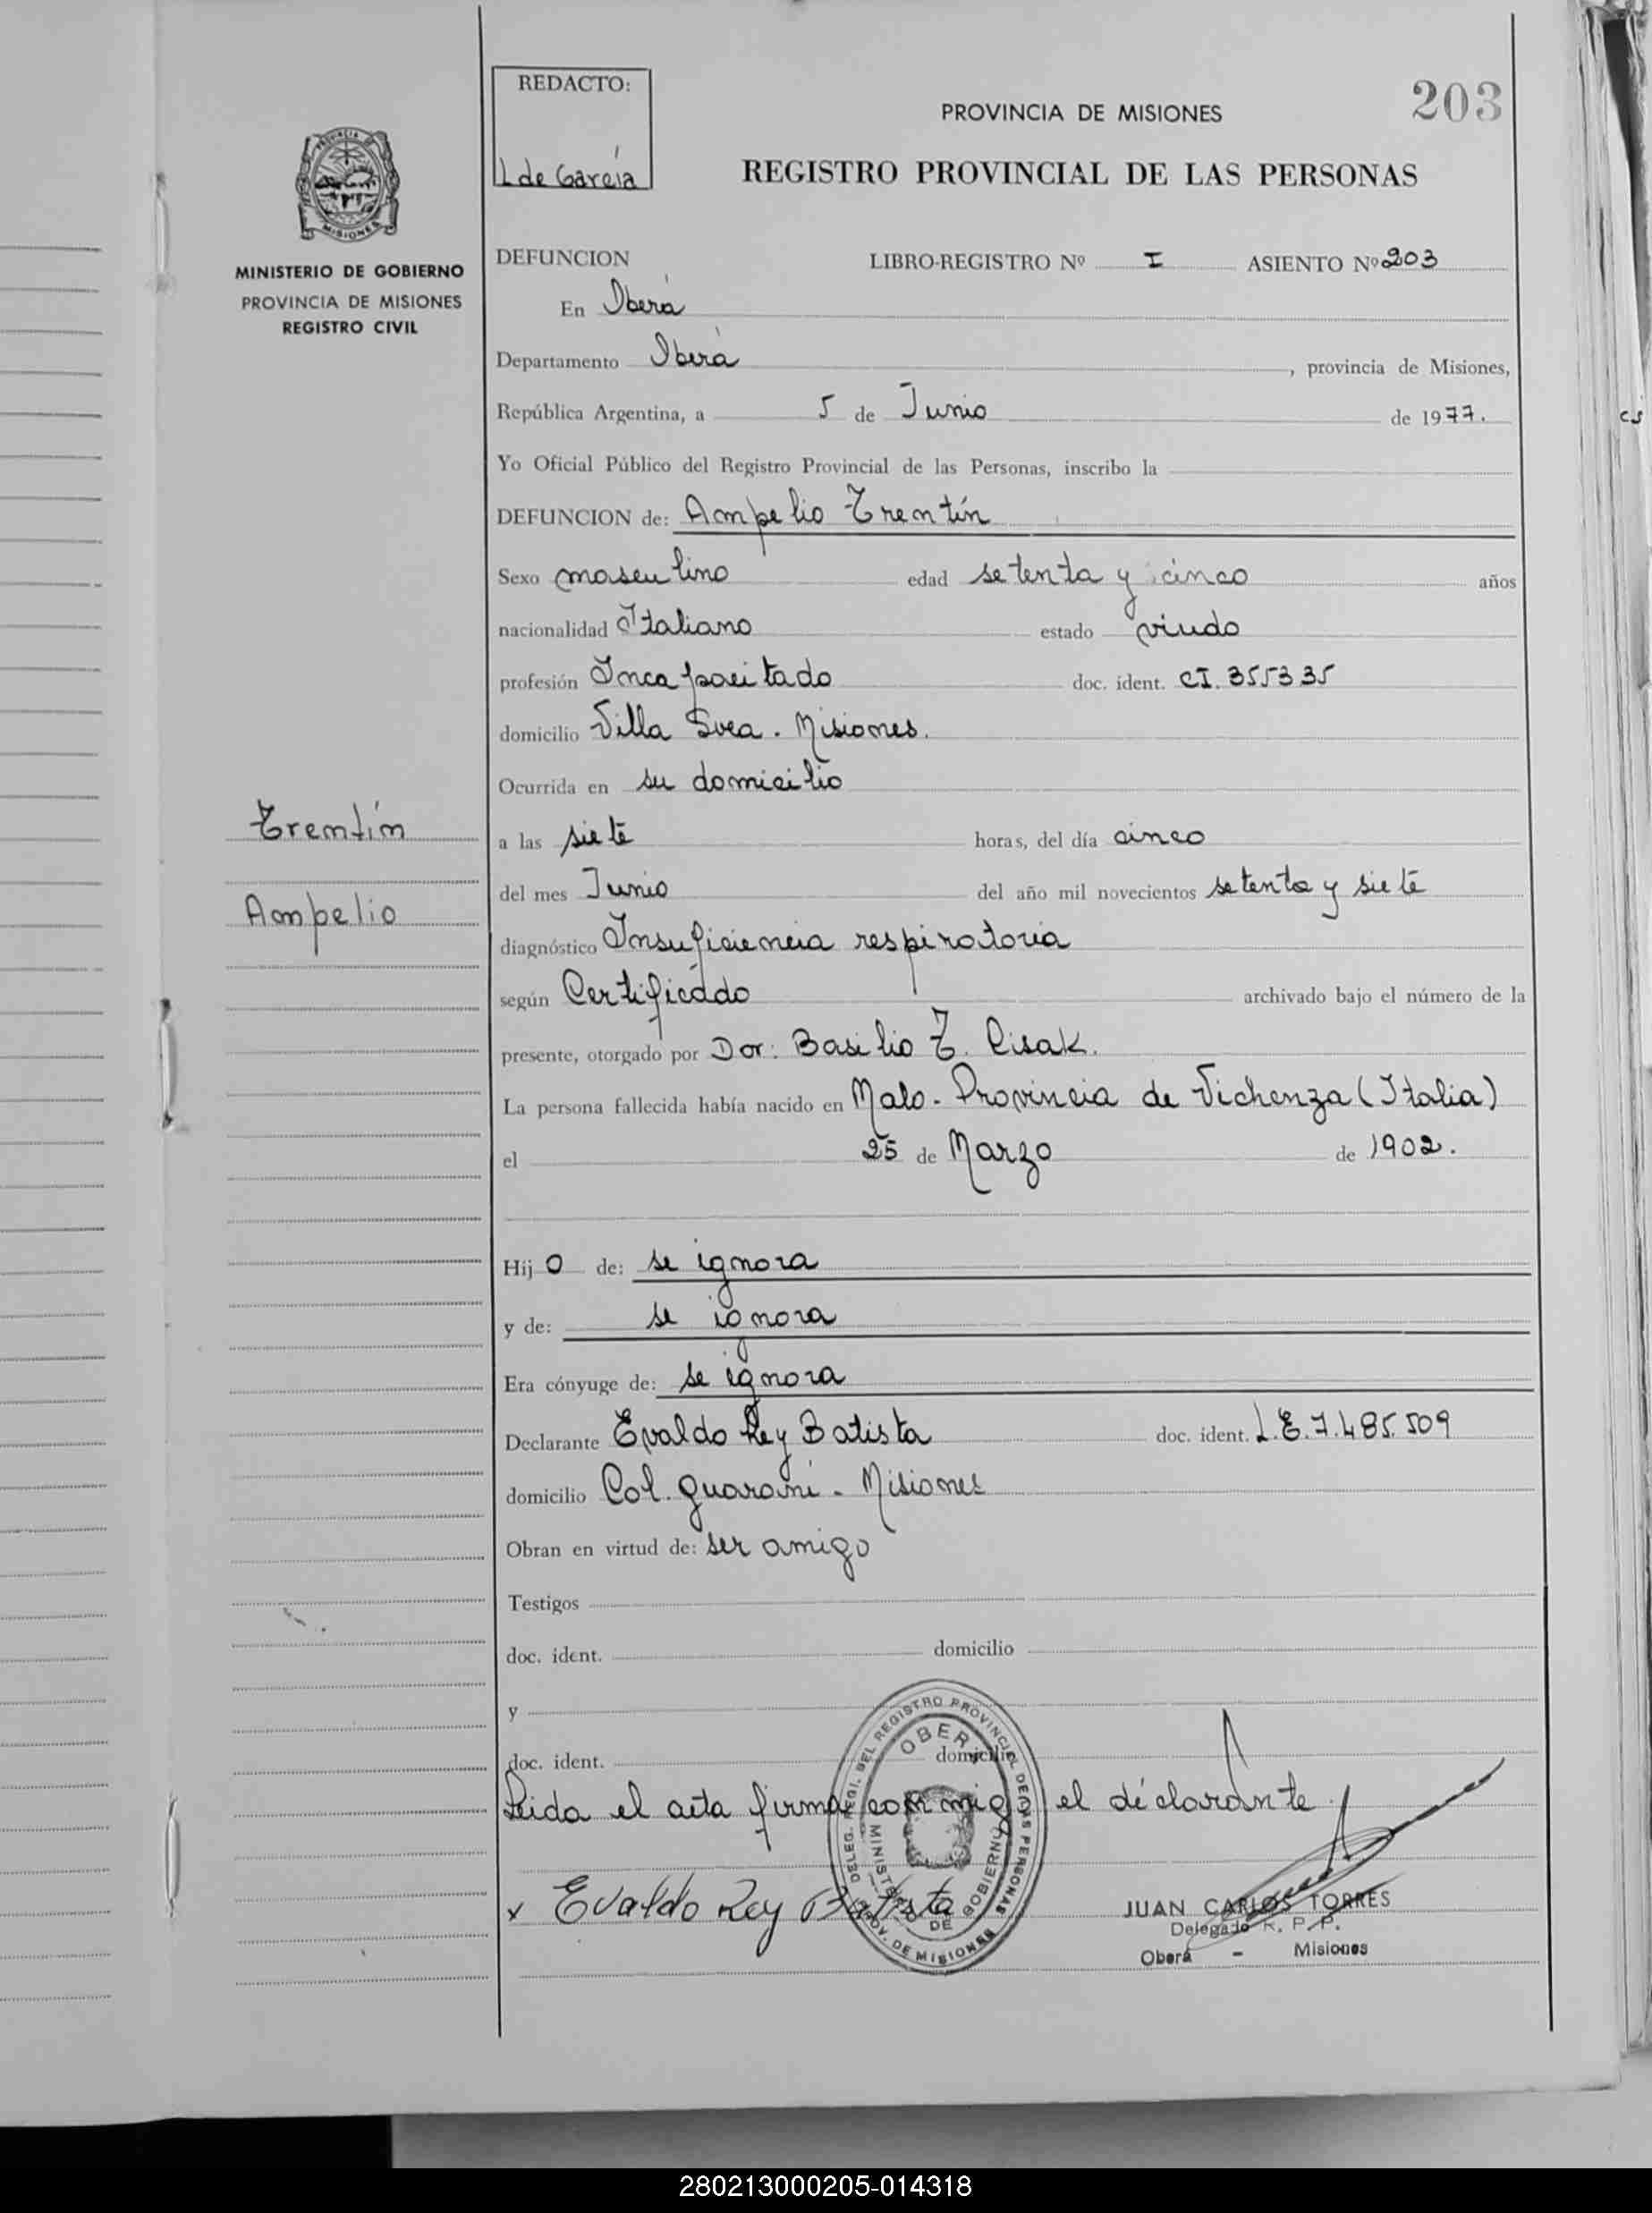 REDACTO:
L de García
203
PROVINCIA DE MISIONES
REGISTRO PROVINCIAL DE LAS PERSONAS
MINISTERIO DE GOBIERNO
PROVINCIA DE MISIONES
REGISTRO CIVIL
DEFUNCION LIBRO-REGISTRO Nº I ASIENTO Nº 203
En Oberá
Departamento Oberá, provincia de Misiones,
República Argentina, a 5 de Junio de 1977.
Yo Oficial Público del Registro Provincial de las Personas, inscribo la
DEFUNCION de: Ampelio Trentín
Sexo masculino edad setenta y cinco años
nacionalidad Italiano estado viudo
profesión Incapacitado doc. ident. CI. 355335
domicilio Villa Svea. Misiones.
Ocurrida en su domicilio
Trentín
Ampelio
a las siete horas, del día cinco
del mes Junio del año mil novecientos setenta y siete
diagnóstico Insuficiencia respiratoria
según Certificado archivado bajo el número de la
presente, otorgado por Dor: Basilio T. Cisak.
La persona fallecida había nacido en Malo. Provincia de Vichenza (Italia)
el 25 de Marzo de 1902.
Hijo de: se ignora
y de: se ignora
Era cónyuge de: se ignora
Declarante Evaldo Rey Batista doc. ident. L.E. 7.485.509
domicilio Col. guaraní - Misiones
Obran en virtud de: ser amigo
Testigos
doc. ident. domicilio
y
doc. ident. domicilio
Leida el acta firma conmigo el declarante.
x Evaldo Rey Batista
OBERA
MINISTERIO DE GOBIERNO
PROV. DE MISIONES
JUAN CARLOS TORRES
Delegado R. P. P.
Oberá - Misiones
280213000205-014318